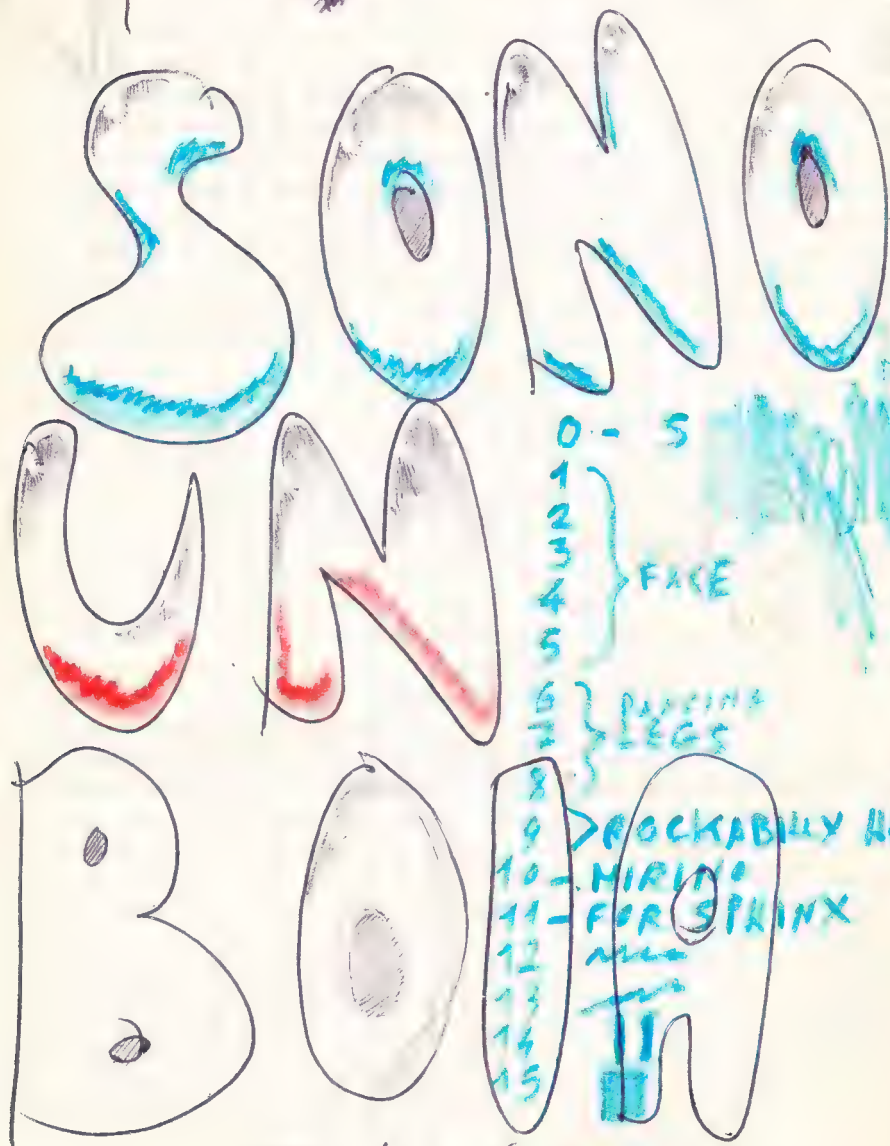 SONO
UN
BOIA
0 - S
1
2
3
4
5
FACE
6
7
8
DANCING
LEGS
9 > ROCKABILLY H
10 - MIRINO
11 - FOR SPHINX
12
13
14
15